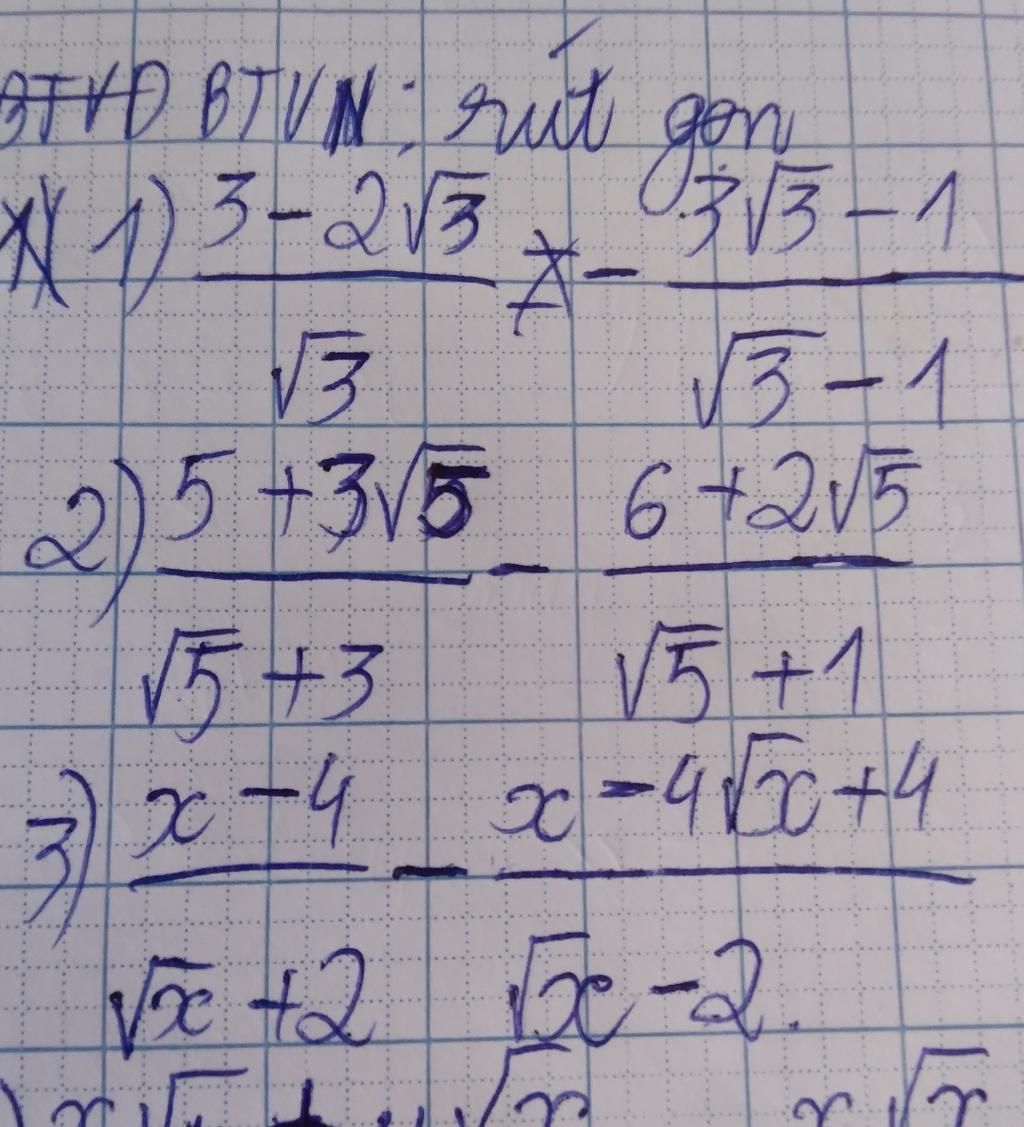 BTVN: rút gọn
1) (3 - 2√3)/√3 - (3√3 - 1)/(√3 - 1)
2) (5 + 3√5)/(√5 + 3) - (6 + 2√5)/(√5 + 1)
3) (x - 4)/(√x + 2) - (x - 4√x + 4)/(√x - 2).